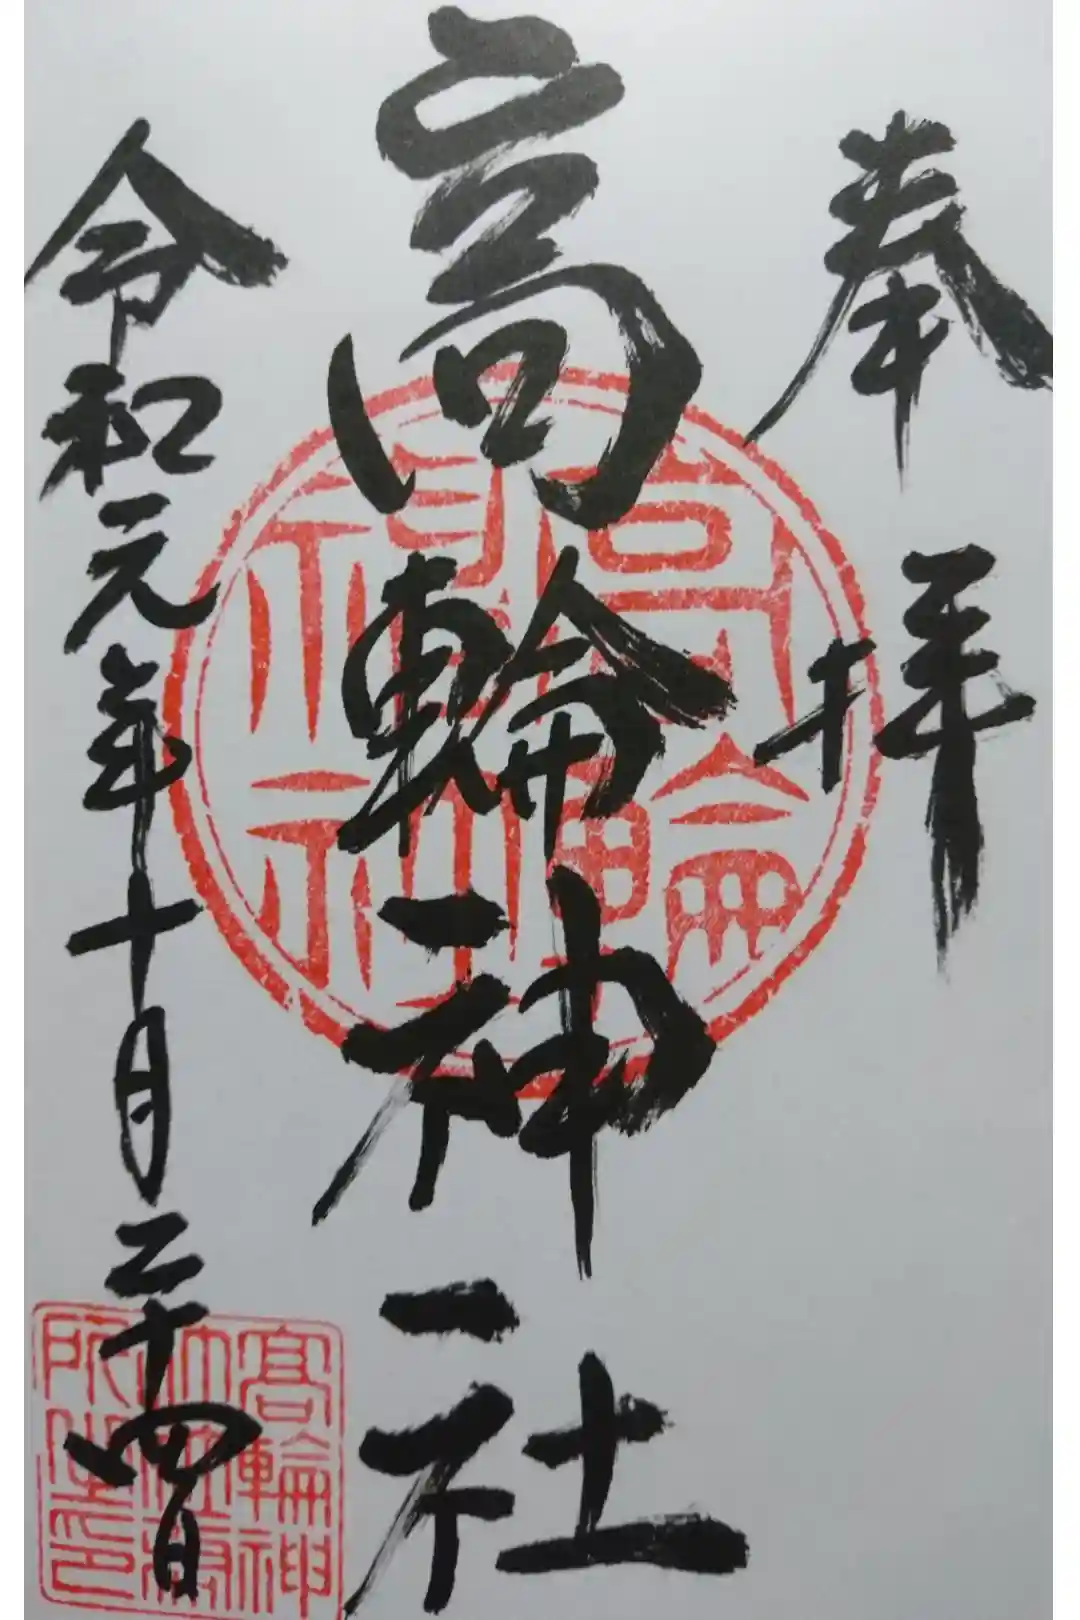 奉拝
高輪神社
令和元年十月二十四日
高輪神
社社務
所之印